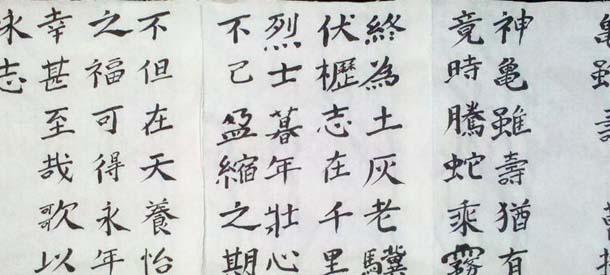 亀雖壽
神亀雖壽猶有
竟時騰蛇乘霧
終為土灰老驥
伏櫪志在千里
烈士暮年壯心
不已盈縮之期
不但在天養怡
之福可得永年
幸甚至哉歌以
志